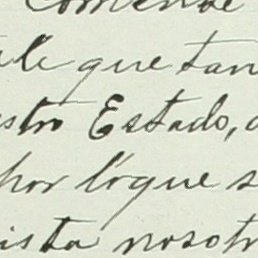 que tan
stro Estado,
por loque s
ista nosotr